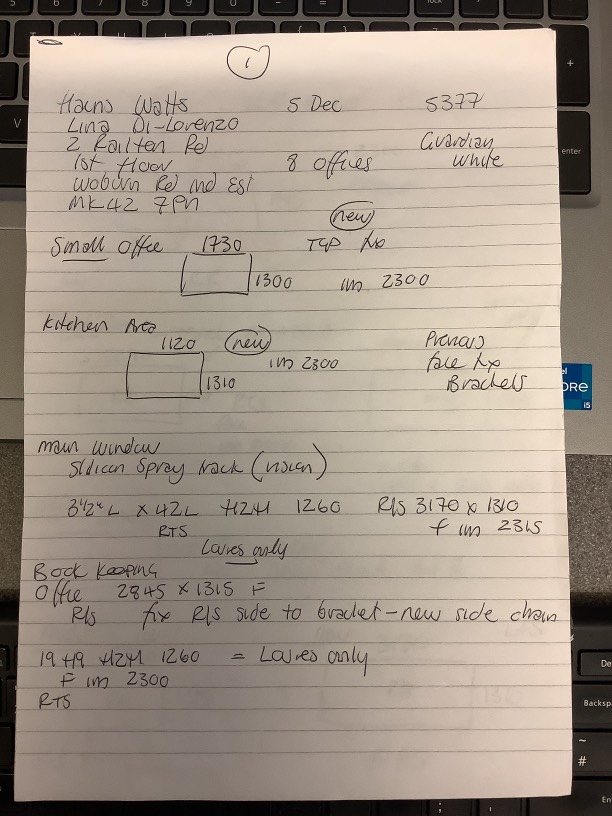 1
Hains Watts 5 Dec 5377
Lina Di-Lorenzo
2 Railton Rd Guardian
1st Floor 8 offices white
Woburn Rd Ind Est
MK42 7PN
new
Small Office 1730 Top fix
1300 1m 2300
Kitchen Area
1120 new Previous
1m 2300 face fix
1310 Brackets
main window
Silicon Spray track (vision)
3 1/2" L x 42L HZH 1260 R/S 3170 x 1310
RTS F 1m 2315
Louvres only
Book Keeping
Office 2845 x 1315 F
R/s fix R/s side to bracket - new side chain
HZH 1260 = Louvres only
F 1m 2300
RTS
enter
CORE
i5